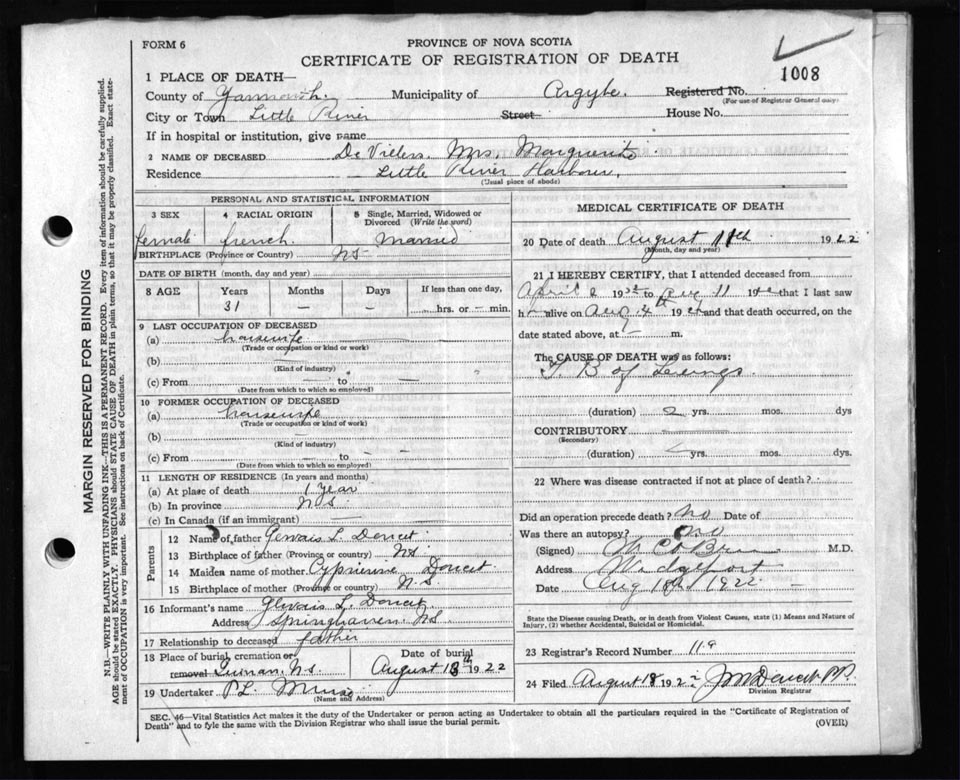 FORM 6
PROVINCE OF NOVA SCOTIA
CERTIFICATE OF REGISTRATION OF DEATH
1008
1 PLACE OF DEATH—
County of Yarmouth. Municipality of Argyle. Registered No.
(For use of Registrar General only)
City or Town Little River Street House No.
If in hospital or institution, give name
2 NAME OF DECEASED Mrs. Marguerite
Residence Little River Harbour.
(Usual place of abode)
PERSONAL AND STATISTICAL INFORMATION
3 SEX 4 RACIAL ORIGIN 5 Single, Married, Widowed or Divorced (Write the word)
female french. Married
BIRTHPLACE (Province or Country) NS
DATE OF BIRTH (month, day and year)
8 AGE Years Months Days If less than one day,
31 — — ....hrs. or — min.
9 LAST OCCUPATION OF DECEASED
(a) housewife
(Trade or occupation or kind or work)
(b)
(Kind of industry)
(c) From — to —
(Date from which to which so employed)
10 FORMER OCCUPATION OF DECEASED
(a) housewife
(Trade or occupation or kind of work)
(b) —
(Kind of industry)
(c) From — to —
(Date from which to which so employed)
11 LENGTH OF RESIDENCE (In years and months)
(a) At place of death 1 year
(b) In province N S.
(c) In Canada (if an immigrant) —
Parents
12 Name of father Gervais L. Doucet
13 Birthplace of father (Province or country) NS
14 Maiden name of mother Doucet
15 Birthplace of mother (Province or country) N.S.
16 Informant's name Gervais L. Doucet
Address Springhaven. NS
17 Relationship to deceased father
18 Place of burial, cremation or removal N.s. Date of burial August 13th 1922
19 Undertaker P.L.
(Name and Address)
MEDICAL CERTIFICATE OF DEATH
20 Date of death August 11th 1922
(Month, day and year)
21 I HEREBY CERTIFY, that I attended deceased from
April 2 19 to Aug 11 19 that I last saw
h alive on Aug 4th 19 and that death occurred, on
date stated above, at m.
The CAUSE OF DEATH was as follows:
T. B of Lungs.
(duration) 2 yrs. mos. dys
CONTRIBUTORY
(Secondary)
(duration) yrs. mos. dys.
22 Where was disease contracted if not at place of death?
Did an operation precede death? No Date of
Was there an autopsy? No
(Signed) M.D.
Address Wedgeport
Date Aug 18th 1922
State the Disease causing Death, or in death from Violent Causes, state (1) Means and Nature of Injury, (2) whether Accidental, Suicidal or Homicidal.
23 Registrar's Record Number 119
24 Filed August 18 1922 Doucet
Division Registrar
SEC. 46—Vital Statistics Act makes it the duty of the Undertaker or person acting as Undertaker to obtain all the particulars required in the "Certificate of Registration of
Death" and to fyle the same with the Division Registrar who shall issue the burial permit. (OVER)
MARGIN RESERVED FOR BINDING
N.B.—WRITE PLAINLY WITH UNFADING INK—THIS IS A PERMANENT RECORD. Every item of information should be carefully supplied.
AGE should be stated EXACTLY. PHYSICIANS should STATE CAUSE OF DEATH in plain terms, so that it may be properly classified. Exact statement of OCCUPATION is very important. See instructions on back of Certificate.